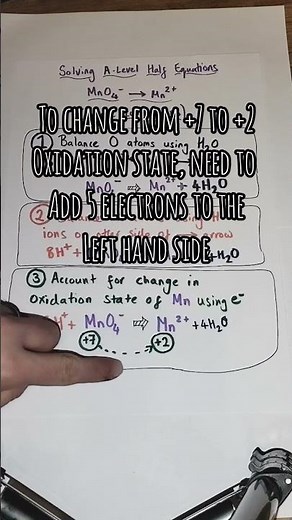 Solving A-Level Half Equations
MnO₄⁻ → Mn²⁺
To change from +7 to +2
Oxidation state, need to
Add 5 electrons to the
Left hand side
1 Balance O atoms using H₂O
MnO₄⁻ ⇒ Mn²⁺ + 4H₂O
2
ions on other side of arrow
8H⁺ + H₂O
3 Account for change in
Oxidation State of Mn using e⁻
H⁺ + MnO₄⁻ ⇒ Mn²⁺ + 4H₂O
+7 +2